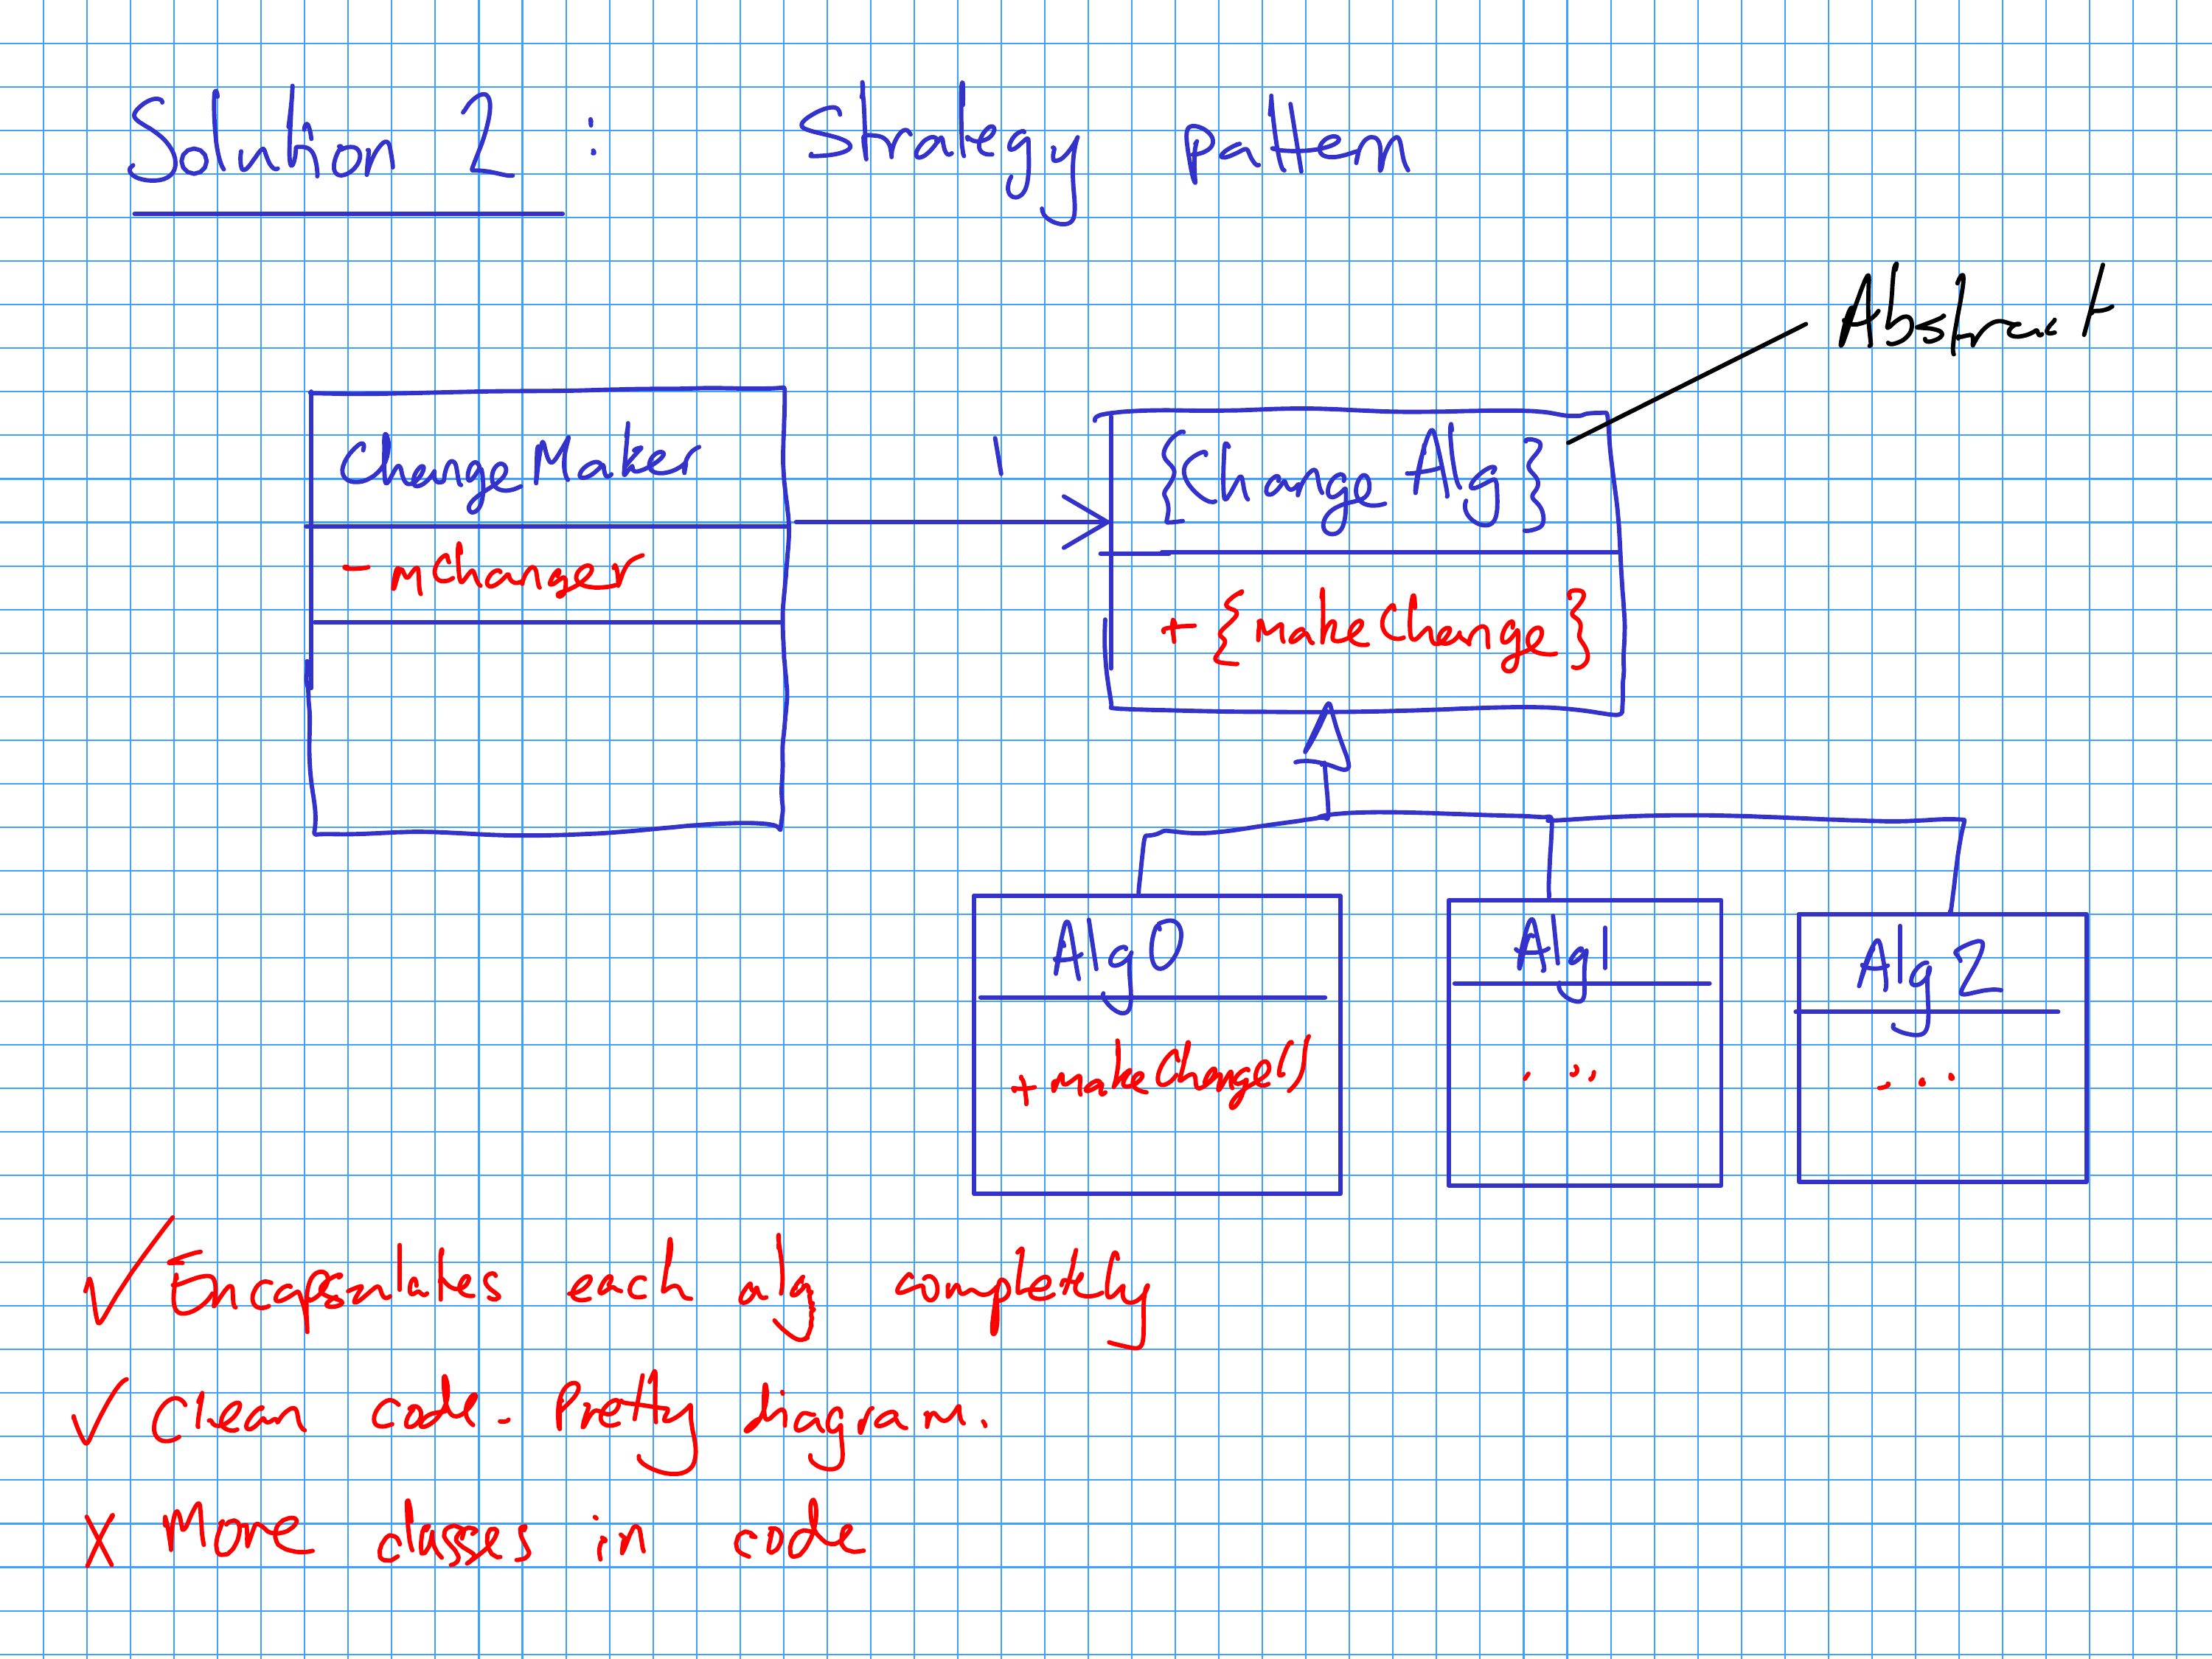 Solution 2 : Strategy pattern
Abstract
ChangeMaker
- mChanger
1
{Change Alg}
+ {makeChange}
Alg0
+ makeChange()
Alg1
...
Alg2
...
✓ Encapsulates each alg completly
✓ Clean code - Pretty diagram.
X More classes in code